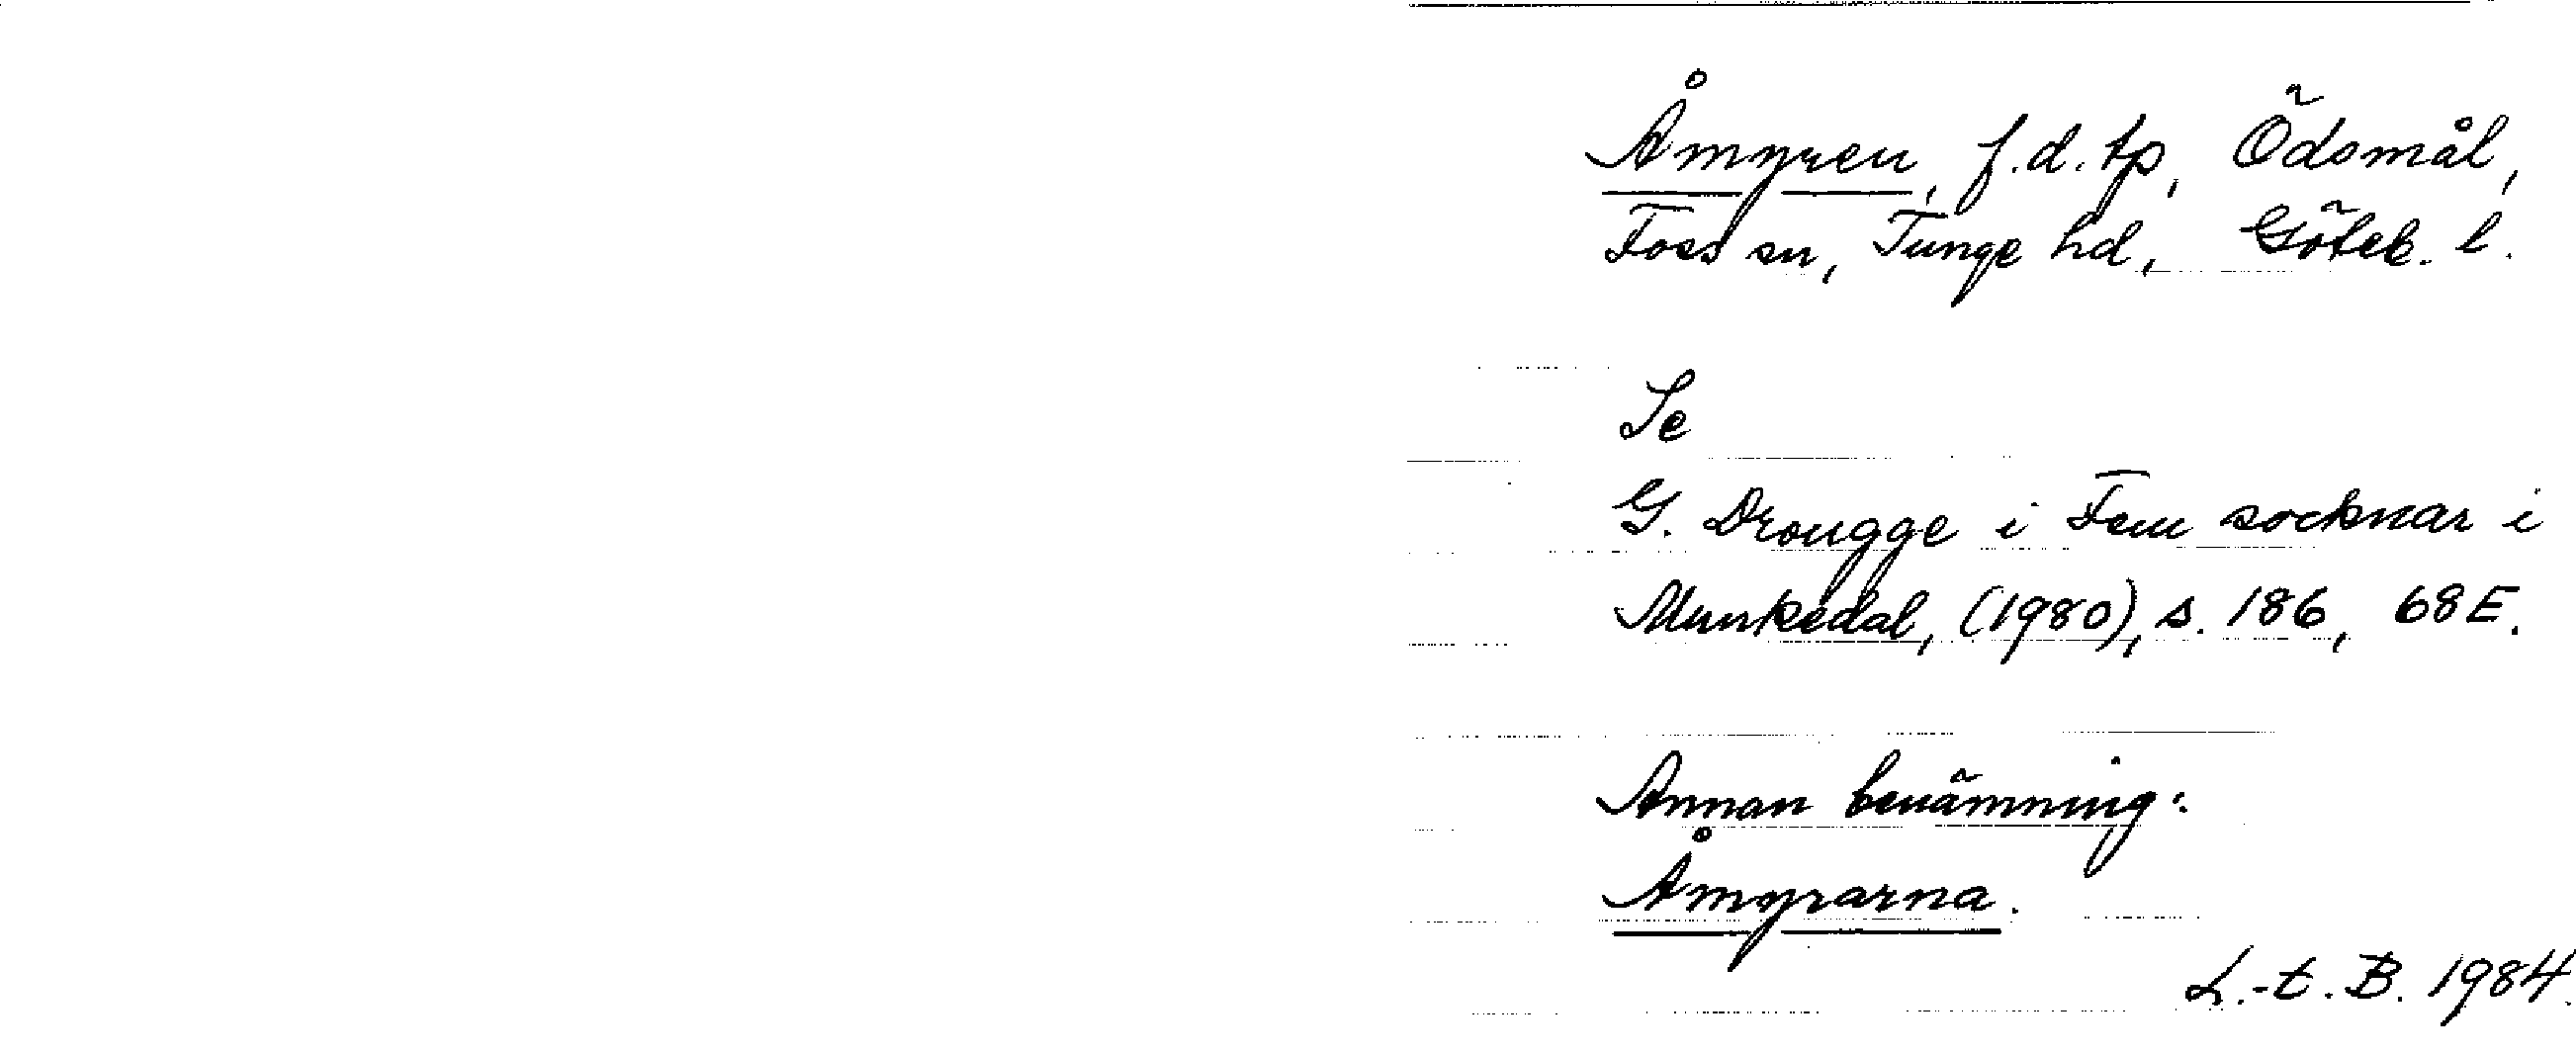 Åmyren, f.d. tp, Ödsmål,
Foss sn, Tunge hd, Göteb. l.
Se
G. Drougge i Fem socknar i
Munkedal, (1980), s. 186, 68E.
Annan benämning:
Åmyrarna.
L.-t. B. 1984.